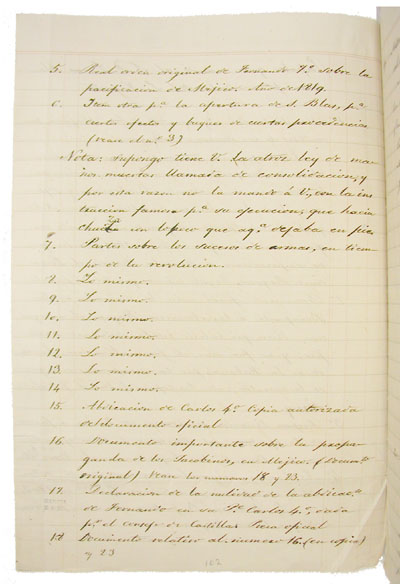 5. Real orden original de Fernando 7º sobre la
pacificacion de Mejico. Año de 1819.
6. Iten otra pª la apertura de S. Blas, pª
ciertos efectos y buques de ciertas procedencias
(vease el nº 3)
Nota: supongo tiene V. la atroz ley de ma-
nos muertas llamada de consolidacion, y
por esta razon no la mando á V., con la ins-
truccion famosa pª su ejecucion, que hacia
lo poco que aqª dejaba en pie.
7. Partes sobre los sucesos de armas, en tiem-
po de la revolucion.
8. Lo mismo.
9. Lo mismo.
10. Lo mismo.
11. Lo mismo.
12. Lo mismo.
13. Lo mismo.
14. Lo mismo.
15. Abdicacion de Carlos 4º Copia autorizada
del documento oficial
16. Documento importante sobre la propa-
ganda de los Jacobinos, en Mejico. (Docum.º
original) Vean los numeros 18 y 23.
17. Declaracion de la nulidad de la abdicac.ⁿ
de Fernando en su Pe Carlos 4º; dada
pr el consejo de Castilla. Pieza oficial
18. Documento relativo al numero 16. (en copia)
y 23
102